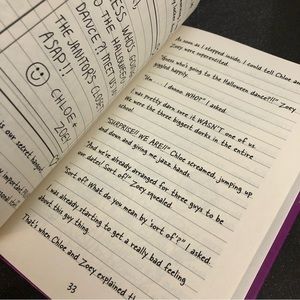 ESS WHO'S GOING
TO THE HALLOWEEN
DANCE?! MEET US IN
THE JANITOR'S CLOSET
ASAP!!
CHLOE +
ZOEY
is our secret hangout
important
As soon as I stepped inside, I could tell Chloe and
Zoey were superexcited.
"Guess who's going to the Halloween dance?!!" Zoey
giggled happily.
"Um . . . I dunno. WHO?" I asked.
I was pretty darn sure it WASN'T one of us.
We were the three biggest dorks in the entire
school.
"SURPRISE!! WE ARE!!" Chloe screamed, jumping up
and down and giving me jazz hands.
"And we've already arranged for three guys to be
our dates! Sort of!" Zoey squealed.
"Sort of? What do you mean by, 'sort of'?" I asked.
I was already starting to get a really bad feeling
about this guy thing.
That's when Chloe and Zoey explained th
33